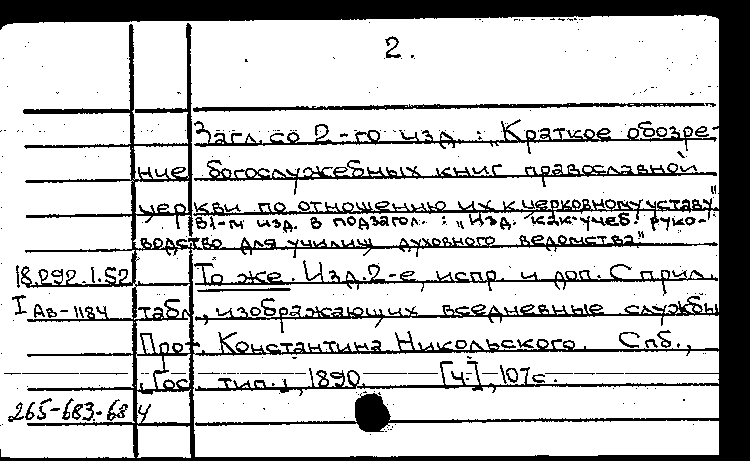 2.
Загл. со 2-го изд.: „Краткое обозре-
ние богослужебных книг православной
церкви по отношению их к церковному уставу"
В 1-м изд. в подзагол.: „Изд. как учеб. руко-
водство для училищ духовного ведомства"
18.292.1.52. То же. Изд. 2-е, испр. и доп. С прил.
I Ав-1184 табл., изображающих вседневные службы
Прот. Константина Никольского. Спб.,
Гос. тип., 1890. [4], 107 с.
265-683-684